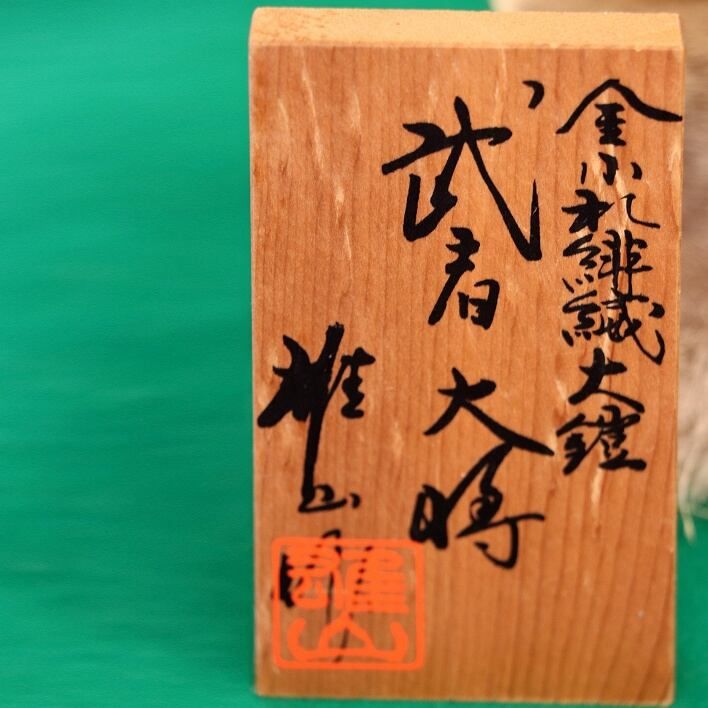 金小札緋縅大鎧
武者大将
雄山
雄山